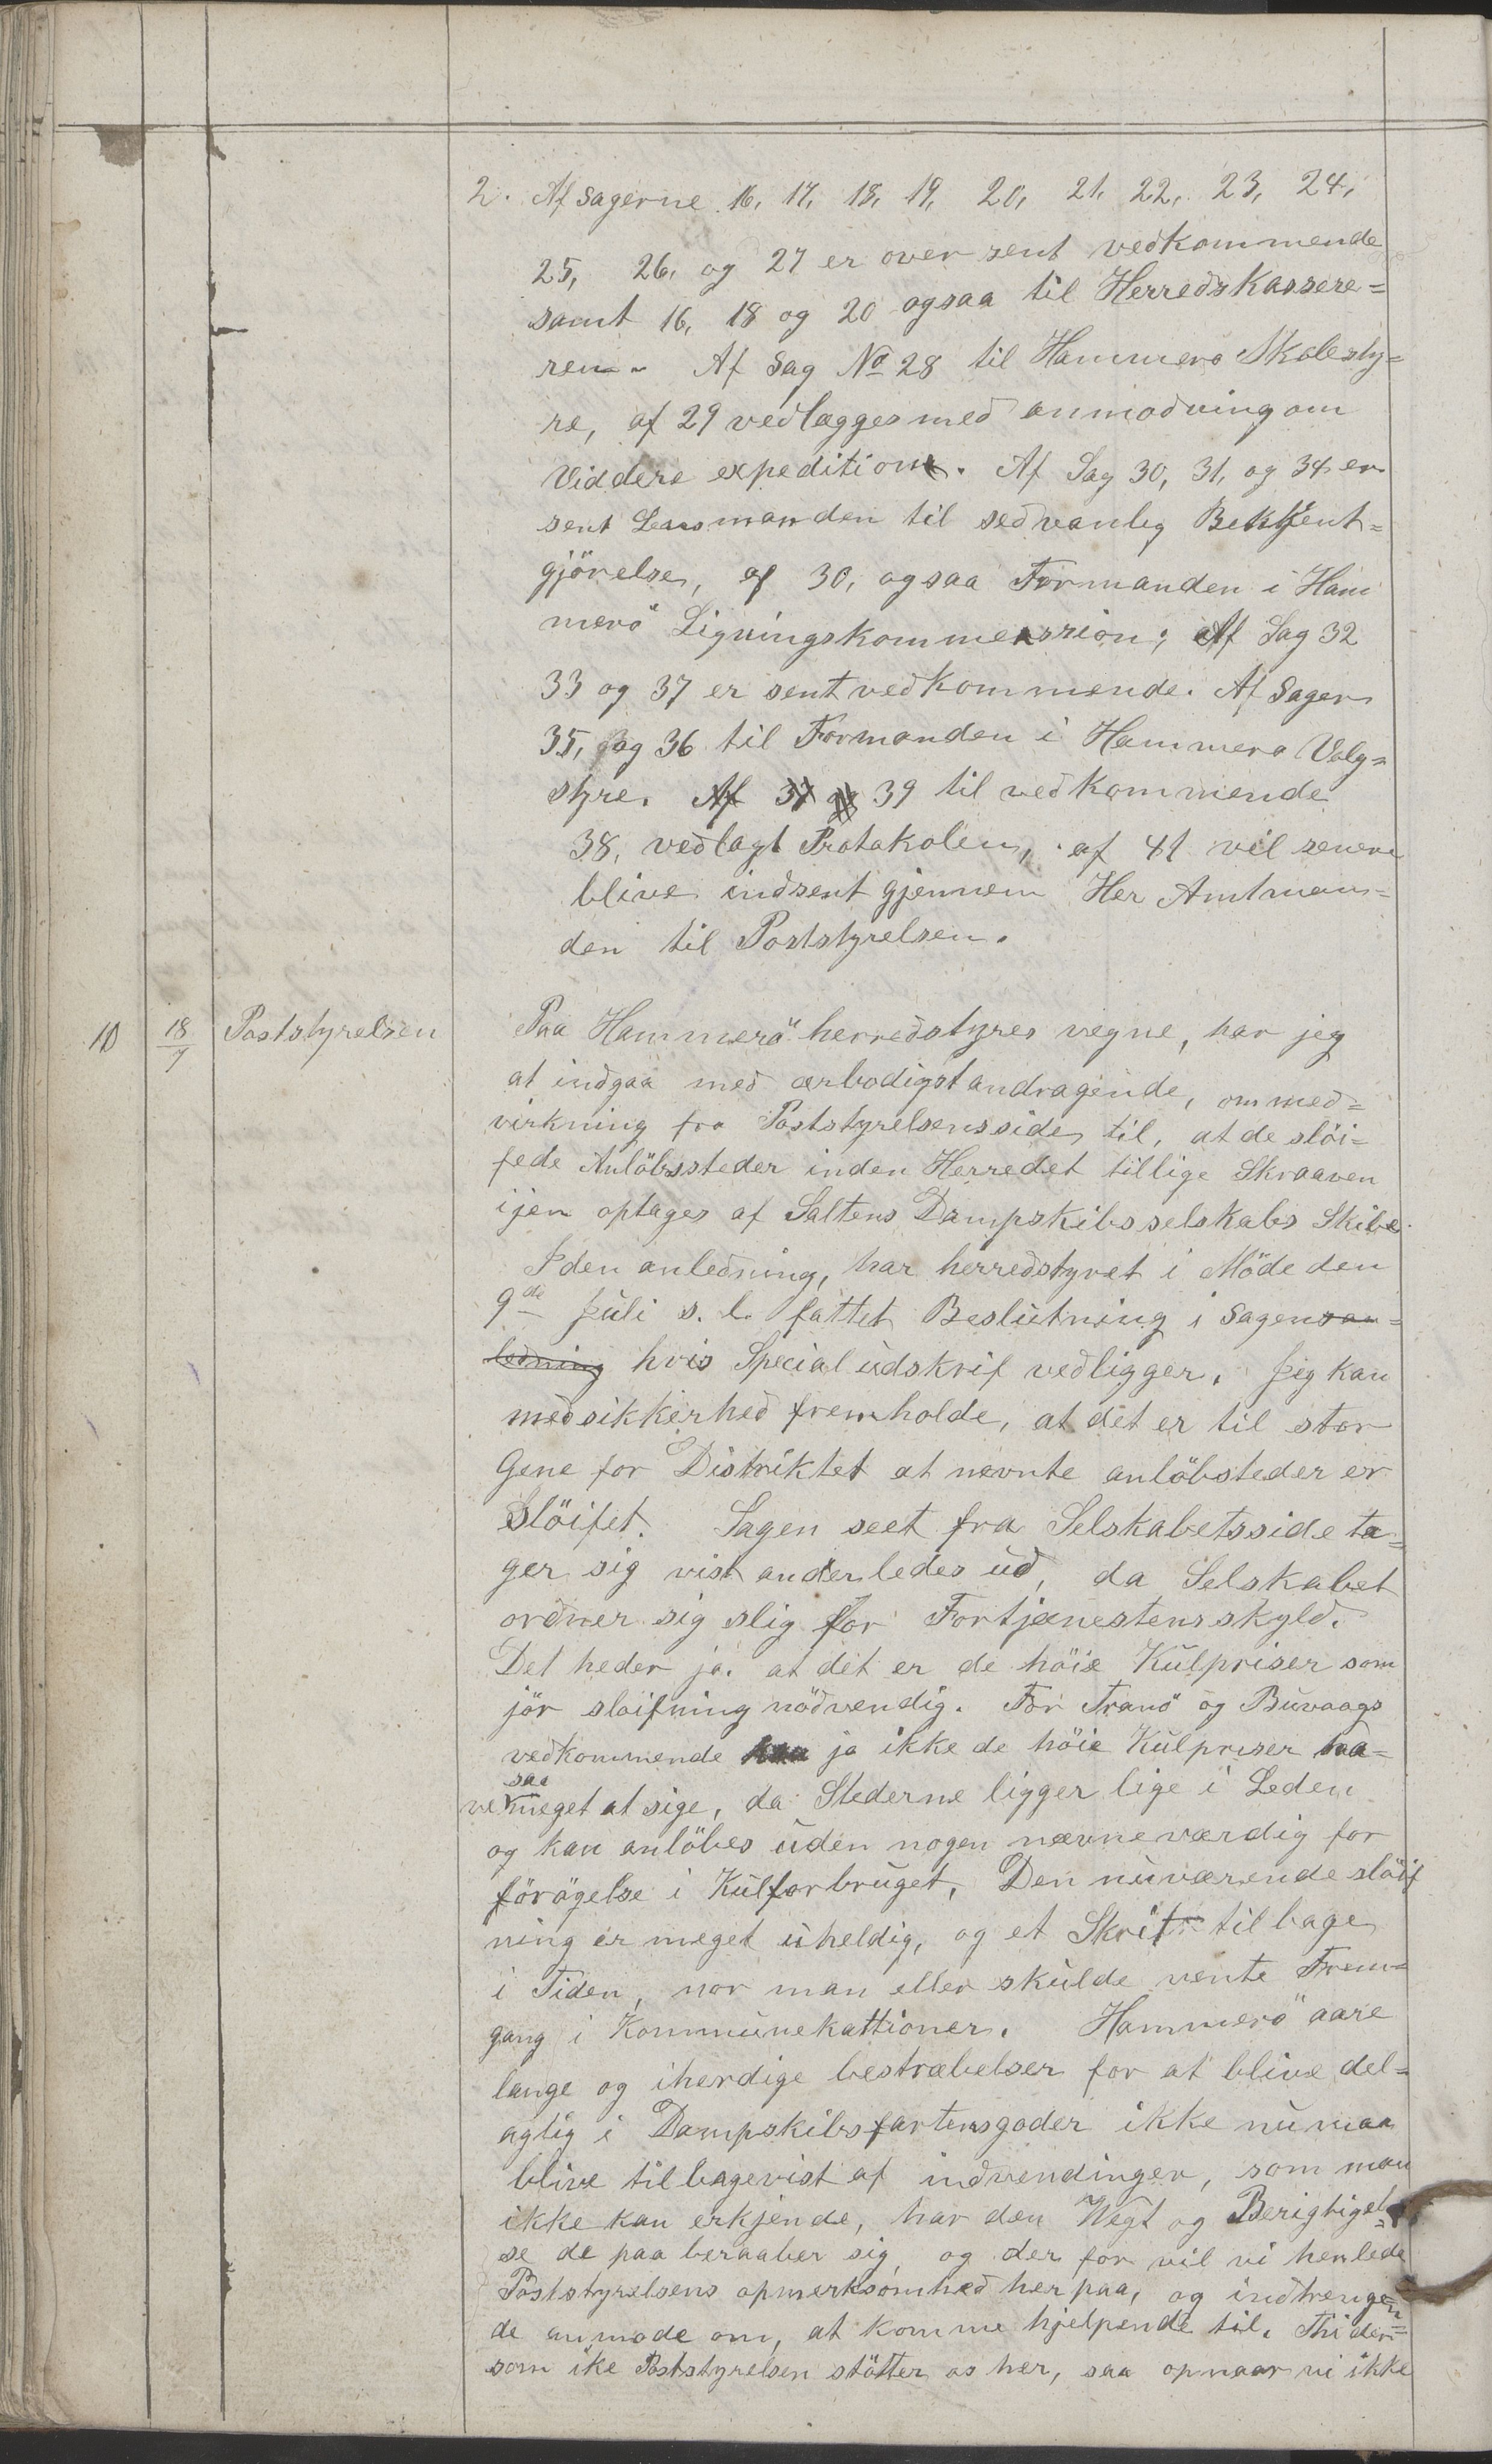 2. Af Sagerne 16, 17, 18, 19, 20, 21, 22, 23, 24,
25, 26, og 27 er over sent vedkommende
samt 16, 18 og 20 ogsaa til Herredskassere=
ren. Af Sag No 28 til Hammerö Skolesty=
re, af 29 vedlægges med anmodning om
Viddere expedition. Af Sag 30, 31, og 34 er
sent Lensmanden til sedvanlig Bekjent=
gjörelse, af 30, ogsaa Formanden i Ham
merö Ligningskommession; Af Sag 32
33 og 37 er sent vedkommende. Af Sager
35, og 36 til Formanden i Hammerö Valg=
styre. Af 37 og 39 til vedkommende
38, vedlagt Protokolen, af 41 vil senere
blive indsent gjennem Her Amtman=
den til Poststyrelsen.
10 18/7 Poststyrelsen Paa Hammerö herredstyres vegne, har jeg
at indgaa med ærbodigst andragende, om med=
virkning fra Poststyrelsens side, til, at de slöi=
fede Anlöbssteder inden Herredet tillige Skraaven
igjen optages af Saltens Dampskibsselskabs Skibe.
I den anledning, har herredstyret i Möde den
9de Juli s. l. fattet Beslutning i Sagens an=
ledning hvis Special udskrif vedligger. Jeg kan
med sikkerhed fremholde, at det er til stor
Gene for Distriktet at nevnte anlöbsteder er
Slöifet. Sagen seet fra Selskabets side ta=
ger sig vist anderledes ud, da Selskabet
ordner sig slig for Fortjænestens skyld.
Det heder ja. at det er de höie Kulpriser som
jör slöifning nödvendig. For Tranö og Buvaags
vedkommende ja ikke de höie Kulpriser ha=
ve saa meget at sige, da Stederne ligger lige i Leden
og kan anlöbes uden nogen nævneværdig for
förögelse i Kulforbruget, Den nuværende slöif
ning er meget uheldig, og et Skrit tilbage
i Tiden, nor man eller skulde vente Frem=
gang i Kommunekattioner. Hammerö aare
lange og iherdige bestræbelser for at blive del=
agtig i Dampskibsfartensgoder ikke nu maa
blive tilbagevist af indvendinger, som man
ikke kan erkjende, har den Vegt og Berigtigel=
se de paa beraaber sig, og der for vil vi henlede
Poststyrelsens opmerksomhed her paa, og indtrengen=
de anmode om, at komme hjelpende til. Thi der=
som ike Poststyrelsen stötter os her, saa opnaar vi ikke